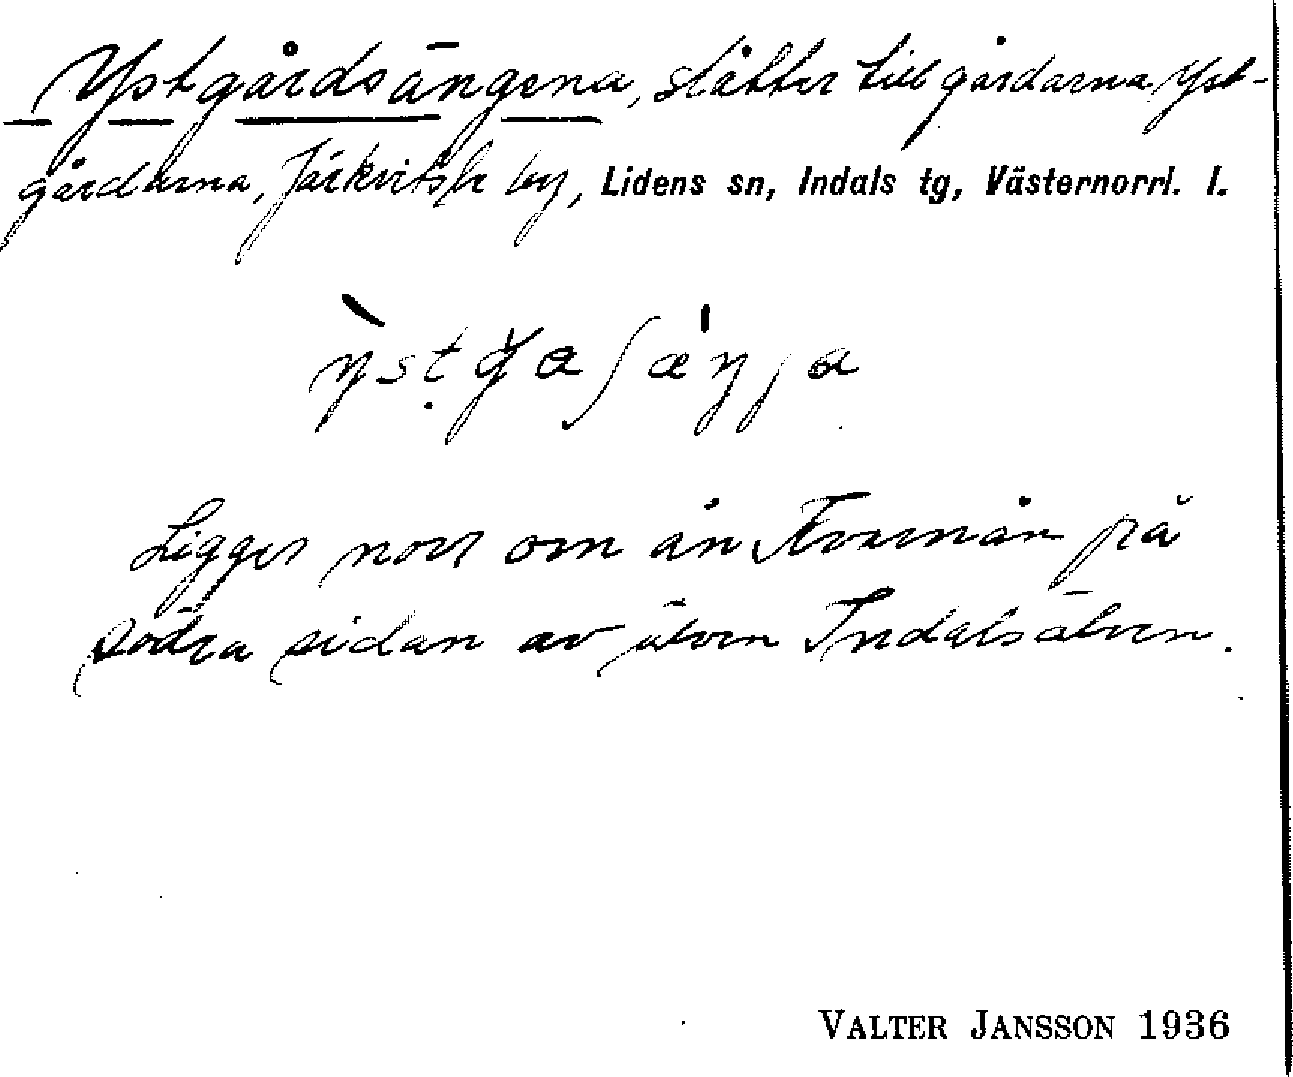 Ystgårdsängena, slåtter till gårdarna Yst-
gårdarna, Järkvitsle by, Lidens sn, Indals tg, Västernorrl. l.
Ligger norr om ån Kvarnån på
södra sidan av älven Indalsälven.
VALTER JANSSON 1936